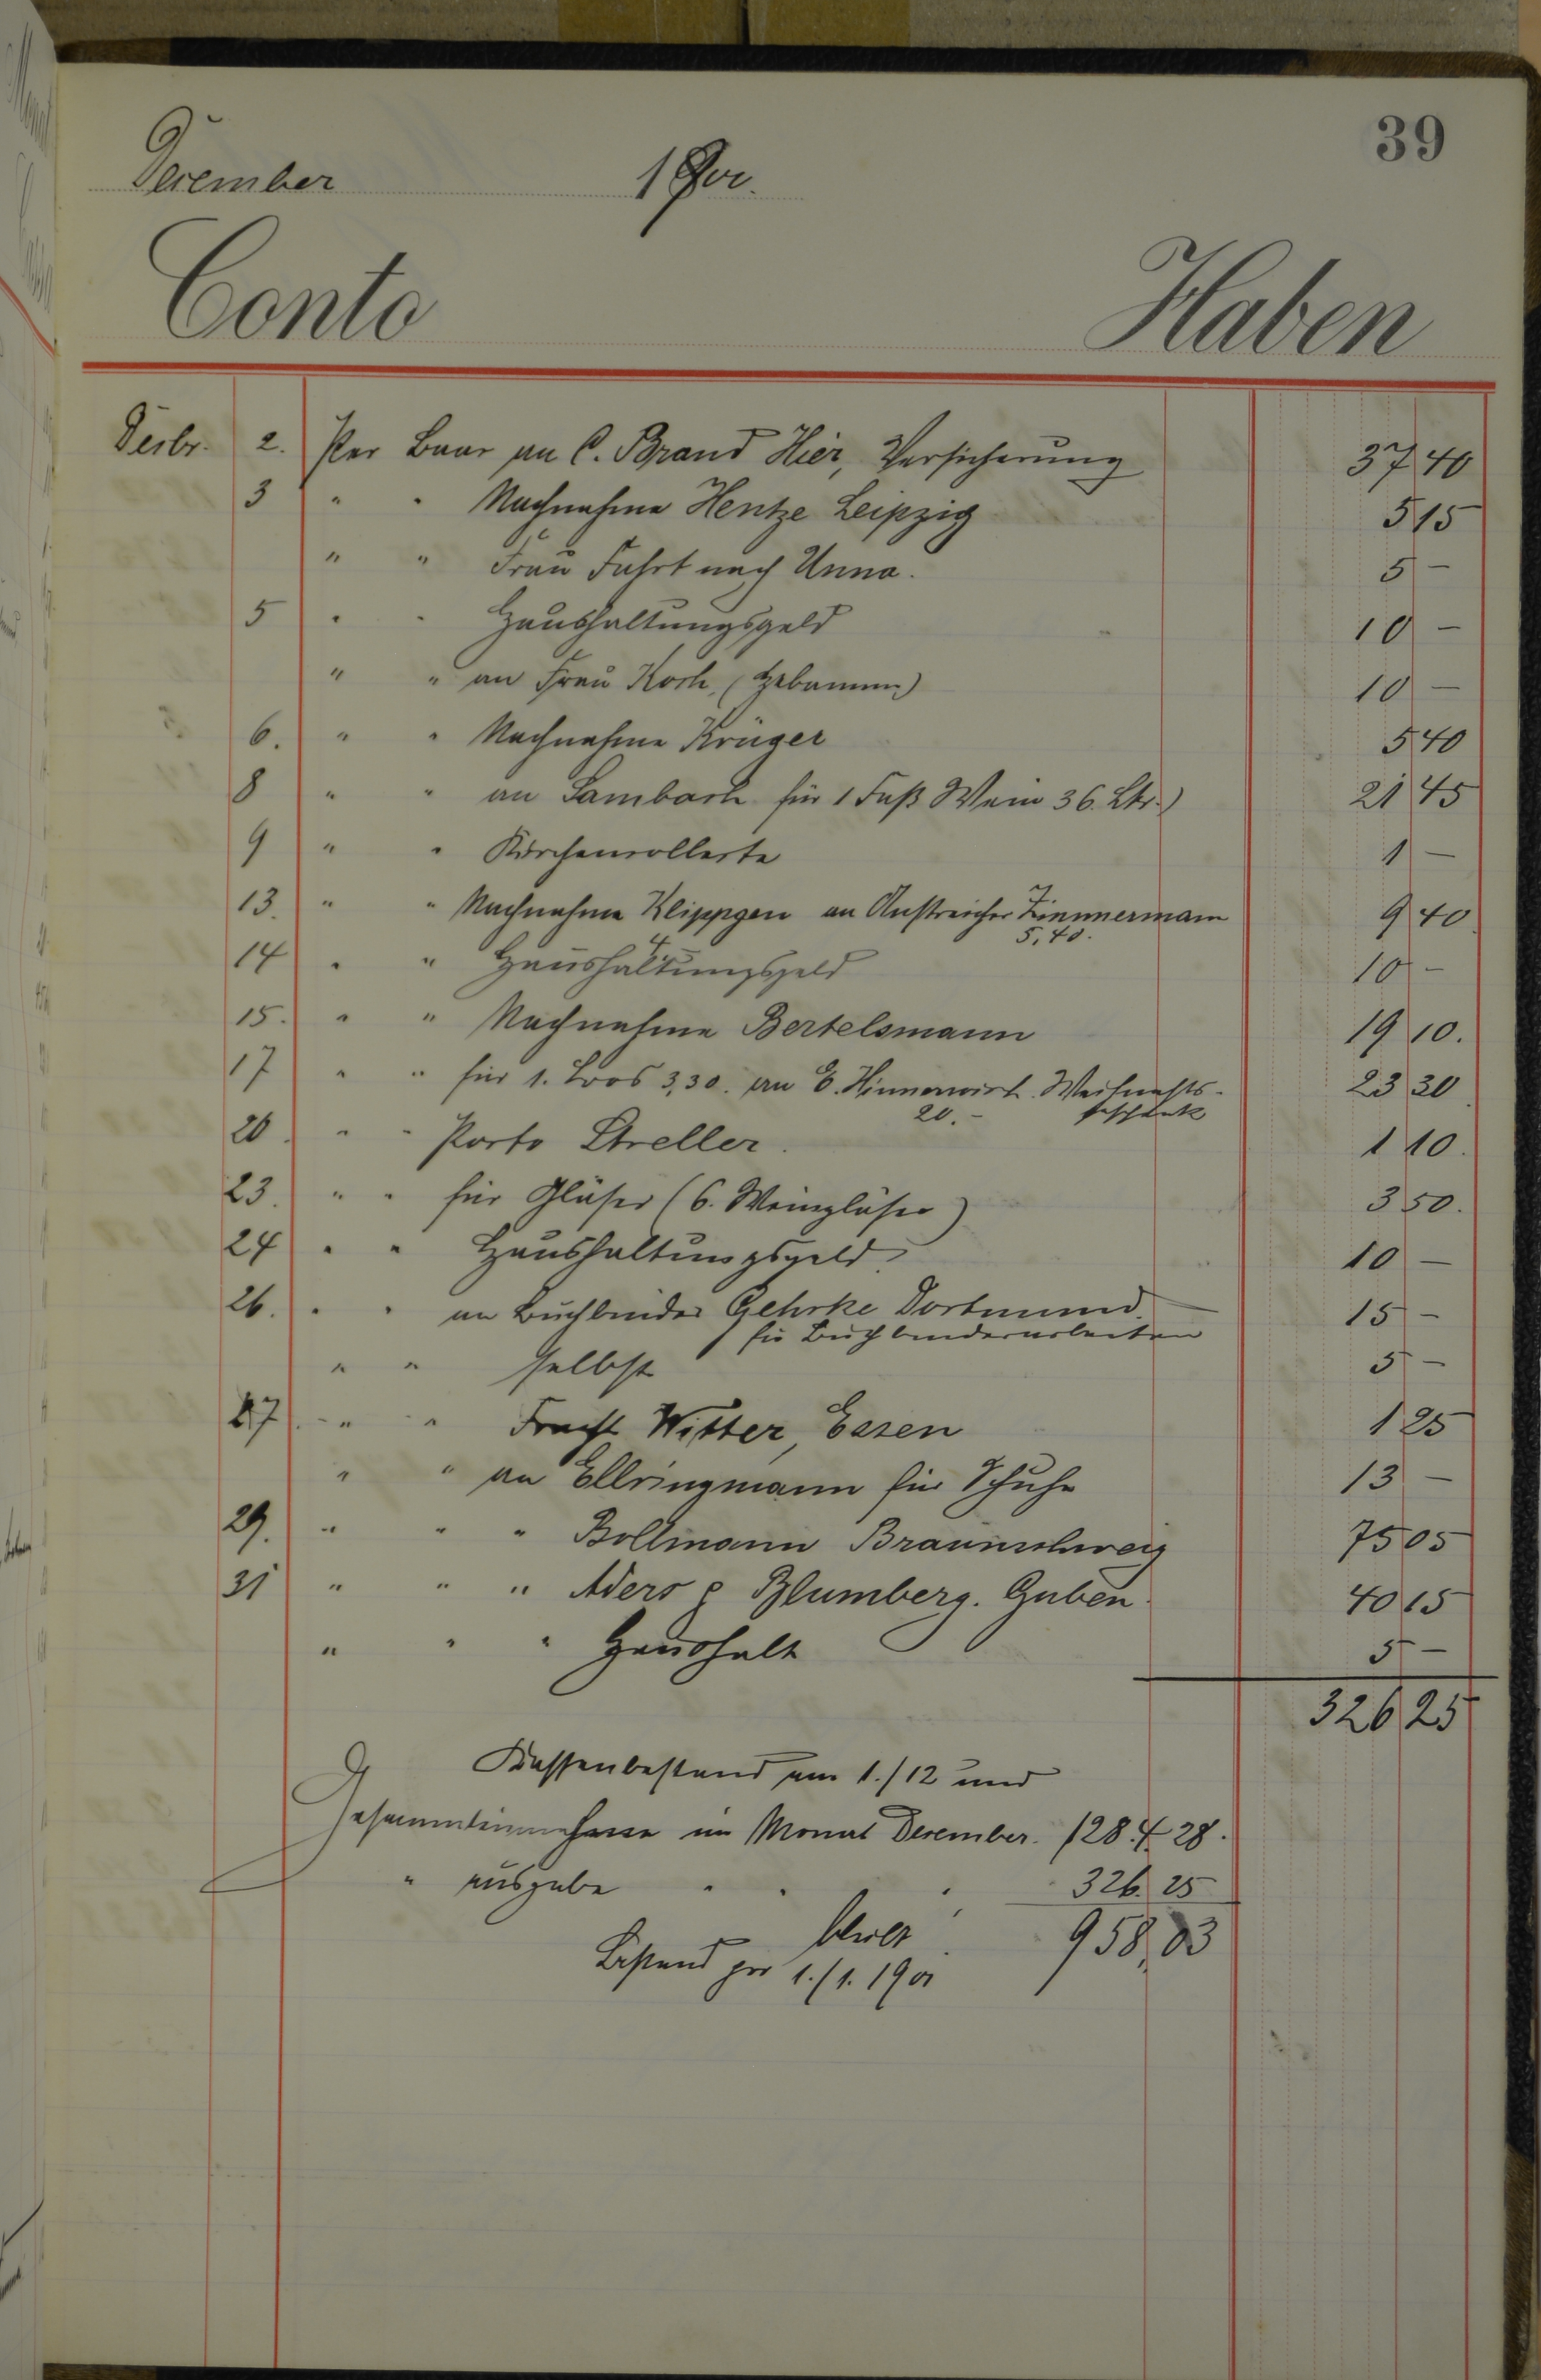 39
December 1900.
Conto Haben
Dezbr. 2. Per Baar an C. Brand Hier, Versicherung 37 40
3 " " Nachnahme Hentze Leipzig 5 15
" " Frau Fahrt nach Unna. 5 –
5 " " Haushaltungsgeld 10 –
" " an Frau Koch, (Hebamme) 10 –
6. " " Nachnahme Krüger 5 40
8 " " an Lambach für 1 Faß Wein 36. Ltr.) 21 45
9 " " Kirchencollecte 1 –
13. " " Nachnahme Klippgen an Anstreicher Zimmermann 9 40
4 5,40.
14 " " Haushaltungsgeld 10 –
15. " " Nachnahme Bertelsmann 19 10.
17 " " für 1. Loos 3,30. an E. Hinnerwirth. Weihnachts- 23 30
20.- geschenk
20. " " Porto Streller. 1 10.
23. " " für Gläser (6. Weingläser) 3 50.
24 " " Haushaltungsgeld. 10 –
26. " " an Buchbinder Gehrke Dortmund. 15 –
für Buchbinderarbeiten
" " selbst 5 –
27. " " Fracht Witter, Essen 1 25
" " an Ellringmann für Schuhe 13 –
29. " " " Bollmann Braunschweig 75 05
31 " " " Aders & Blumberg. Guben. 40 15
" " " Haushalt 5 –
326 25
Kassenbestand am 1./12 und
Gesammteinnahme im Monat December. 1284 28.
" ausgabe " " " 326. 25
bleibt
Bestand per 1./1. 1901 958,03